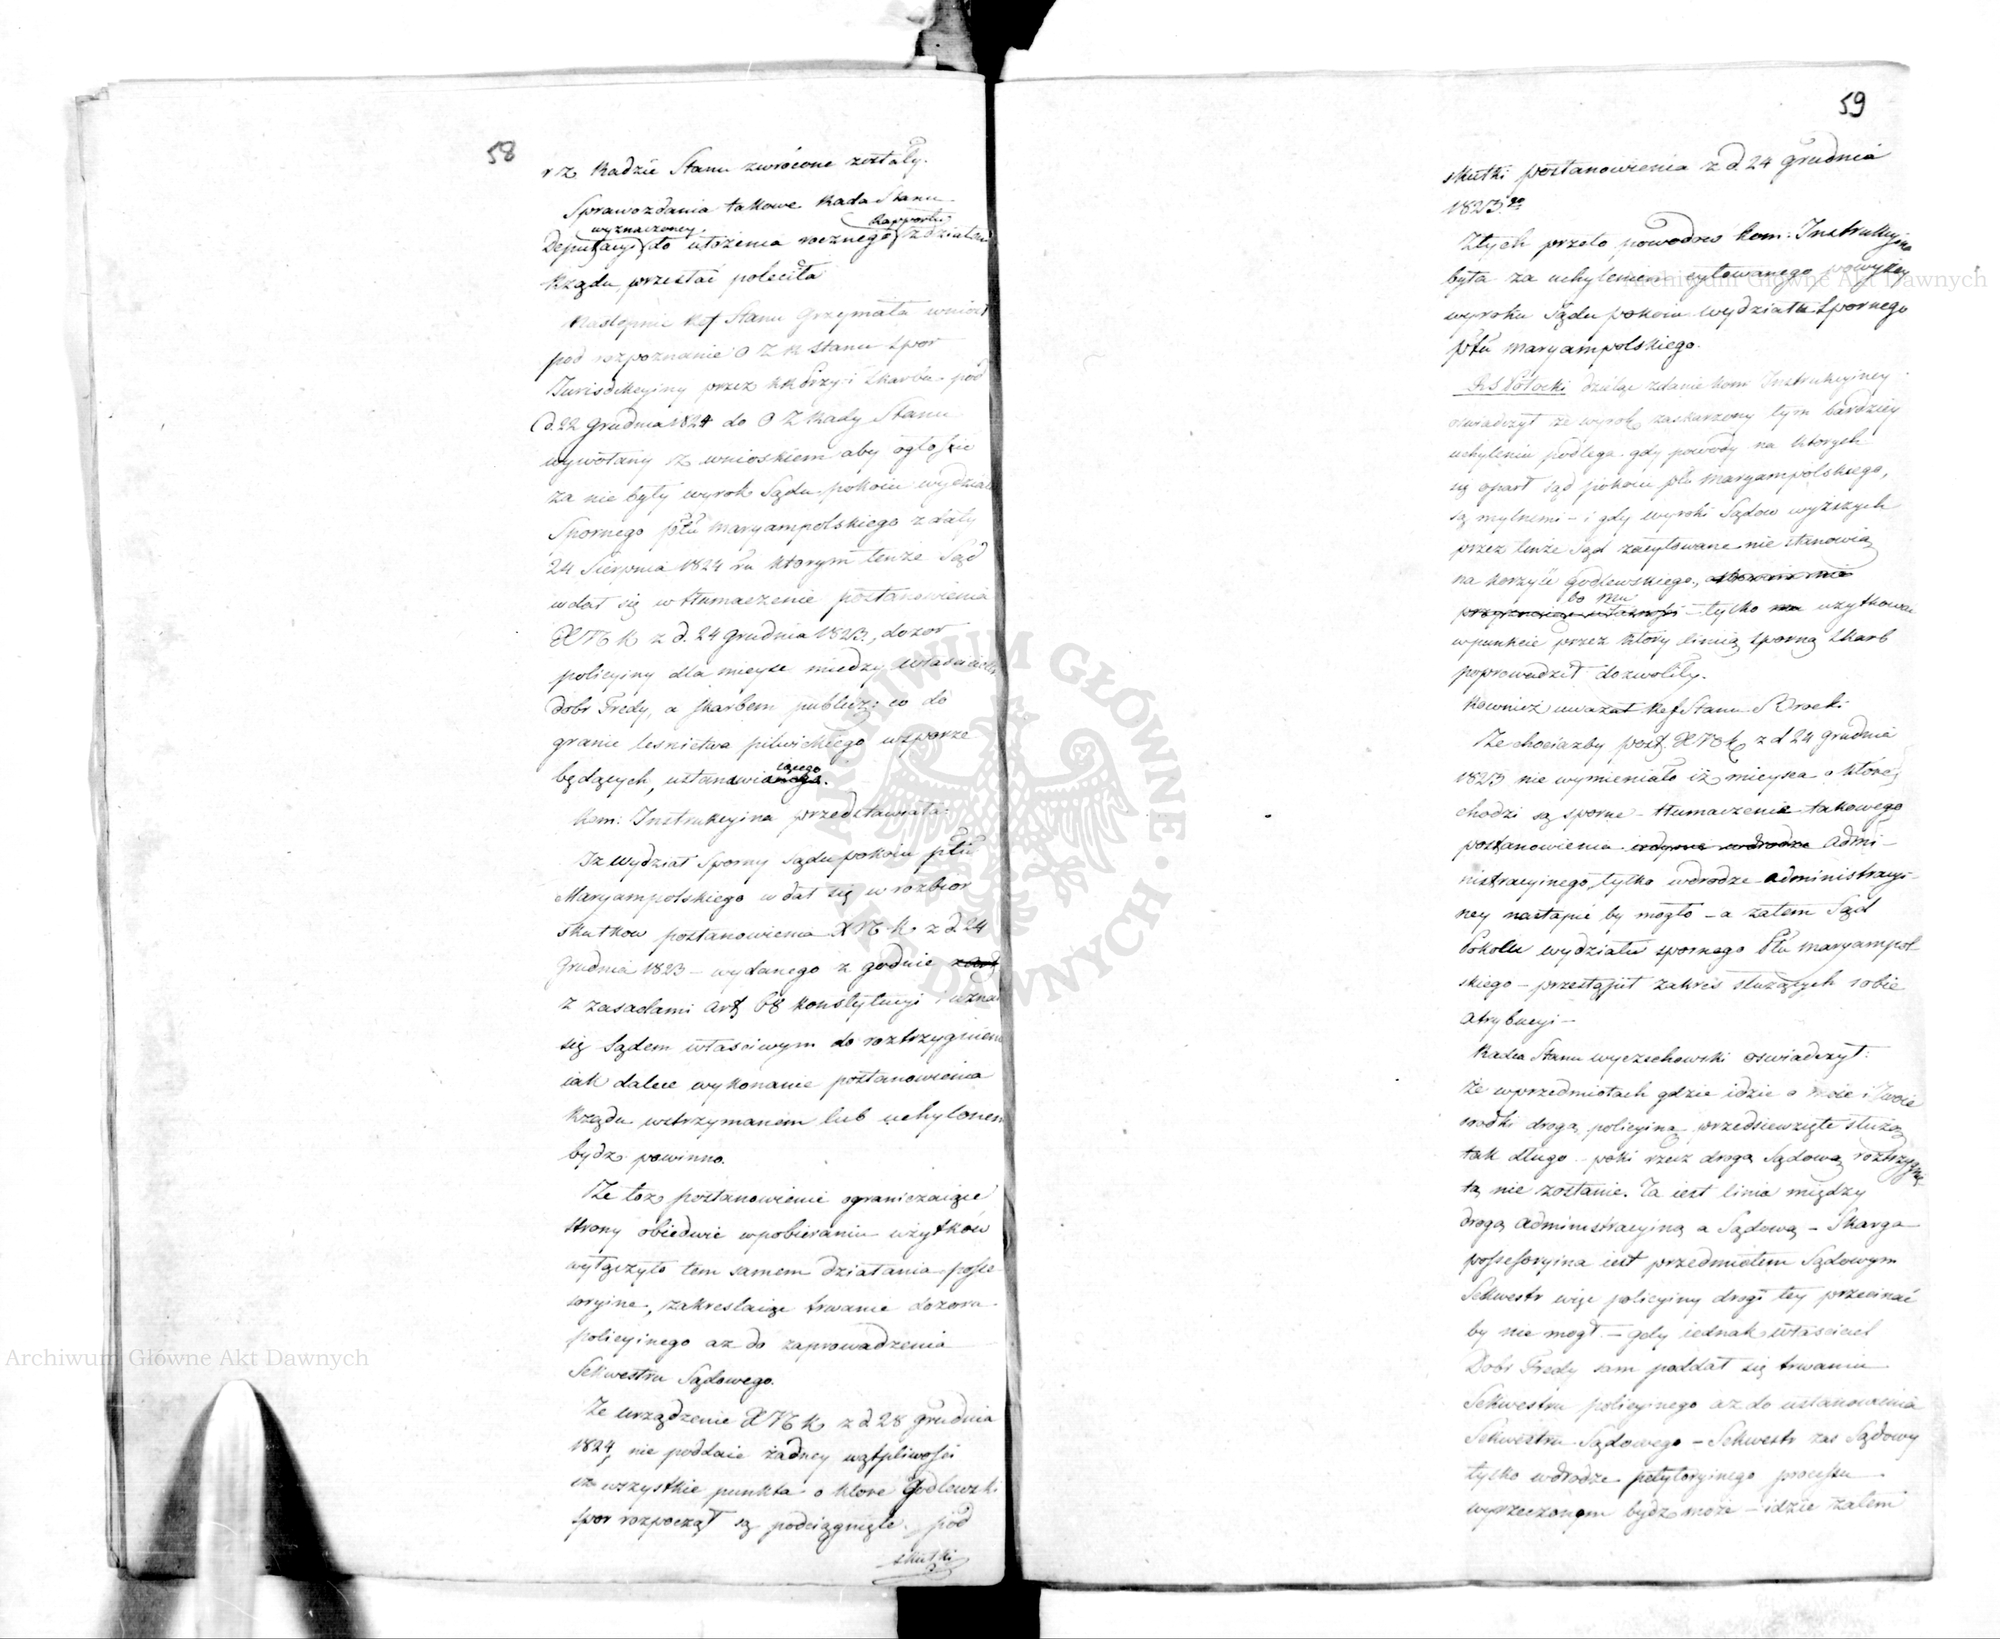 58
r z Radzie Stanu zwrócone zostały.
Sprawozdania takowe Rada Stanu
wyznaczoney Rapportu
Deputacyi do ułożenia rocznego z działań
Rządu przesłać poleciła
Następnie Ref Stanu Grzymała wniósł
pod rozpoznanie O Z R Stanu spor
Jurisdikcyiny przez KRPrzy i Skarbu pod
d. 22 Grudnia 1824 do O Z Rady Stanu
wywołany z wnioskiem aby ogłosić
za nie były wyrok Sądu pokoiu wydziału
Spornego pttu Maryampolskiego z daty
24 Sierpnia 1824 ru ktorym tenże Sąd
wdał się w tłumaczenie postanowienia
XNK z d. 24 Grudnia 1823, dozor
policyiny dla mieysc miedzy właścicielem
dobr Fredy, a skarbem publicz: co do
granic lesnictwa pilwickiego w sporze
iącego
będących, ustanawia
Kom: Instrukcyina przedstawiała:
Iż wydział Sporny Sądu pokoiu pttu
Maryampolskiego wdał się w rozbior
skutkow postanowienia XNK z d 24
Grudnia 1823 – wydanego zgodnie
z zasadami art 68 konstytucyi i uznał
się Sądem właściwym do roztrzygnienia
iak dalece wykonanie postanowienia
Rządu wstrzymanem lub uchylonem
bydź powinno.
Że toż postanowienie ograniczaiąc
strony obiedwie w pobieraniu użytków
wyłączyło tem samem działania posse-
soryine, zakreslaiąc trwanie dozoru
policyinego aż do zaprowadzenia
Sekwestru Sądowego.
Że urządzenie XNK z d 28 Grudnia
1824, nie poddaie żadney wątpliwości
iż wszystkie punkta o które Godlewski
spor rozpoczął są podciągnięte pod
skutki
59
skutki postanowienia z d. 24 Grudnia
1823 go
Z tych przeto powodow Kom: Instrukcyina
była za uchyleniem cytowanego powyżey
wyroku Sądu pokoiu wydziału Spornego
pttu Maryampolskiego.
RS Potocki dzieląc zdanie kom Instrukcyiney
oswiadczył że wyrok zaskarżony tym bardziey
uchyleniu podlega gdy powody na ktorych
się oparł sąd pokoiu pttu Maryampolskiego,
są mylnemi – i gdy wyroki Sądow wyższych
przez tenże Sąd zacytowane nie stanowią
na korzyść Godlewskiego,
bo mu
tylko użytkowan
w punkcie przez który linią sporną Skarb
poprowadził dozwoliły.
Rownież uważał Ref Stanu
Że chociażby post XNK z d 24 Grudnia
1823 nie wymieniało iż mieysca o które
chodzi są sporne – tłumaczenie takowego
postanowienia admi-
nistracyinego, tylko w drodze administracyi-
ney nastąpić by mogło – a zatem Sąd
Pokoiu wydziału spornego Pttu Maryampol-
skiego – przestąpił zakres służących sobie
atrybucyi –
Radca Stanu Wyczechowski oswiadczył:
Że w przedmiotach gdzie idzie o moie i Twoie
srodki drogą policyiną przedsięwzięte służą
tak długo – poki rzecz drogą Sądową roztrzygnię
tą nie zostanie. Ta iest linia między
drogą administracyiną a Sądową – Skarga
possessoryina iest przedmiotem Sądowym
Sekwestr więc policyiny drogi tey przecinać
by nie mogł. – gdy iednak właściciel
Dobr Fredy sam poddał się trwaniu
Sekwestru policyinego aż do ustanowienia
Sekwestru Sądowego – Sekwestr zas Sądowy
tylko w drodze petytoryinego processu
wyrzeczonym bydź może – idzie zatem
ARCHIWUM GŁÓWNE AKT DAWNYCH
Archiwum Główne Akt Dawnych
Archiwum Główne Akt Dawnych